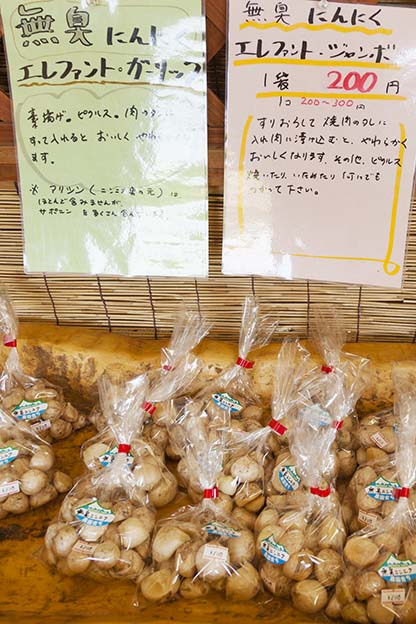 無臭 にんにく
エレファント・ガーリック
素揚げ。ピクルス。肉のタレに
すって入れると おいしく やわ
ます。
※ アリシン(ニンニク臭の元)は
ほとんど含みませんが、
サポニン を多く含
無臭 にんにく
エレファント・ジャンボ
1袋 200円
1コ 200~300円
すりおろして 焼肉のタレに
入れ肉に漬け込むと、やわらかく
おいしくなります。その他、ピクルス
焼いたり、いためたり 何にでも
つかって下さい。